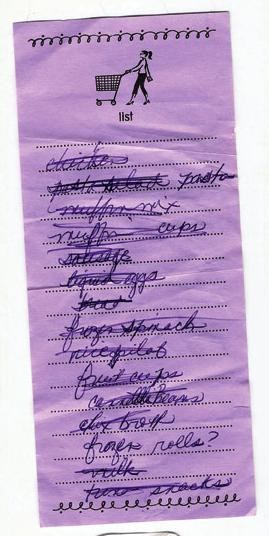 list
chicken
pasta salad
muffin mix
muffin cups
sausage
liquid eggs
bread
frozen spinach
rice pilaf
fruit cups
beans
chix broth
frozen rolls?
milk
snacks